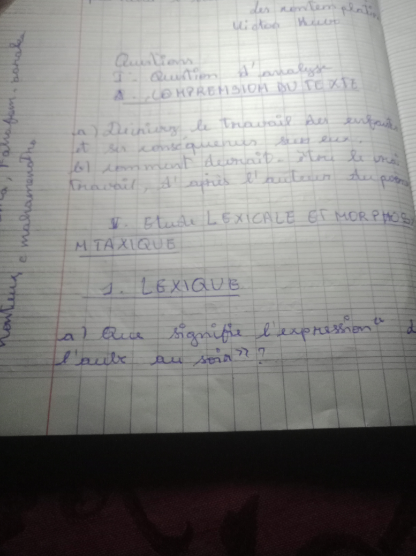 des contemplations
Victor Hugo
Question
I - Question d'analyse
A. COMPREHENSION DU TEXTE
a) le travail des enfants
et ses consequences sur eux.
b) comment devrait- être le vrai
travail, d'après l'auteur du poème
V. Etude LEXICALE ET MORPHOSY
NTAXIQUE
1. LEXIQUE
a) Que signifie l'expression " d
l'aube au soir" ?